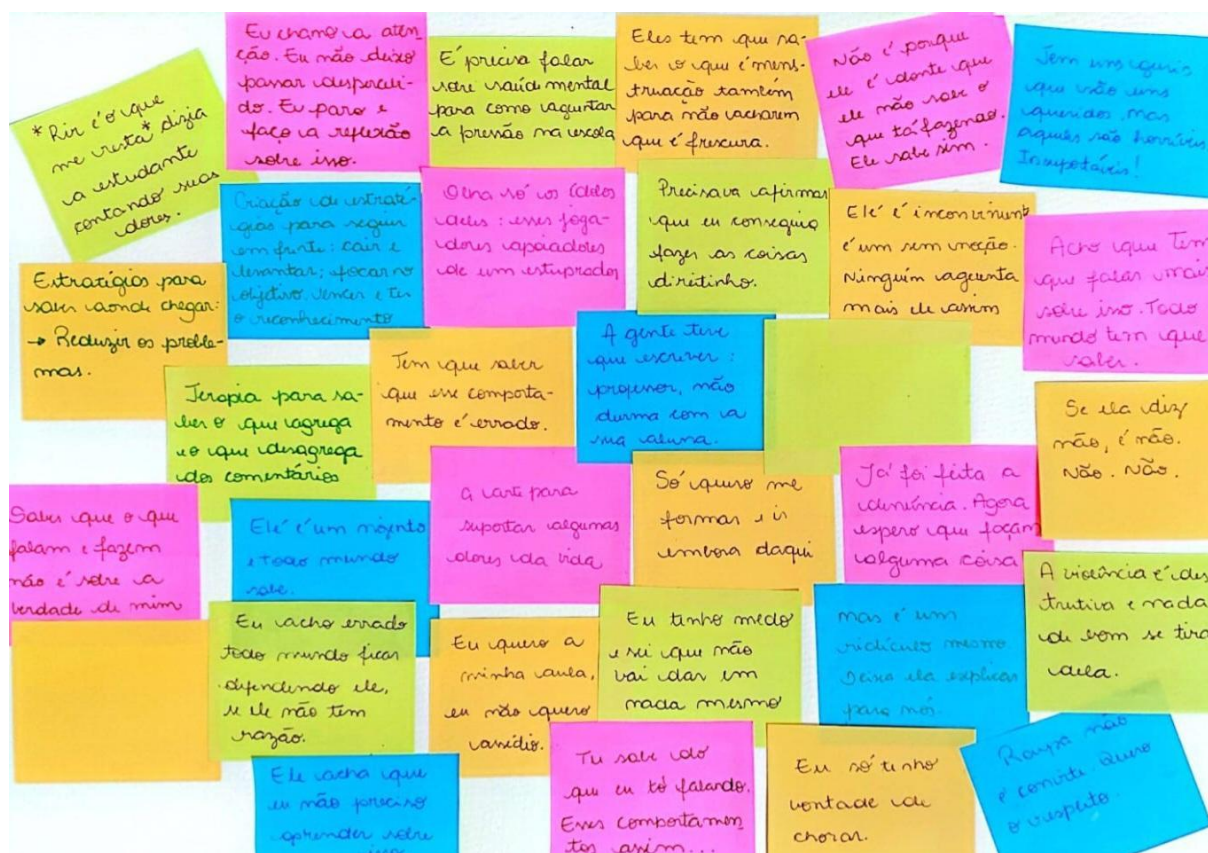 *Rir é o que
me resta* dizia
a estudante
contando suas
dores.
Eu chamo a aten-
ção. Eu não deixo
passar despercebi-
do. Eu paro e
faço a reflexão
sobre isso.
É preciso falar
sobre saúde mental
para como aguentar
a pressão na escola
Eles tem que sa-
ber o que é mens-
truação também
para não acharem
que é frescura.
Não é porque
ele é idonte que
ele não sabe o
que tá fazendo.
Ele sabe sim.
Tem uns guris
que são uns
queridos, mas
aqueles são horríveis
Insuportáveis!
Estratégias para
saber aonde chegar:
→ Reduzir os proble-
mas.
Criação de estraté-
gias para seguir
em frente: cair e
levantar; focar no
objetivo, vencer e ter
o reconhecimento
Olha só os ídolos
deles: esses joga-
dores apoiadores
de um estuprador
Precisava afirmar
que eu conseguia
fazer as coisas
direitinho.
Ele é inconviniente
é um sem noção.
Ninguém aguenta
mais ele assim
Acho que tem
que falar mais
sobre isso. Todo
mundo tem que
saber.
Terapia para sa-
ber o que agrega
e o que desagrega
dos comentários
Tem que saber
que esse comporta-
mento é errado.
A gente teve
que escrever:
professor, não
durma com a
sua aluna.
Se ela diz
não, é não.
Não. Não.
Saber que o que
falam e fazem
não é sobre a
verdade de mim
Ele é um nojento
e todo mundo
sabe.
A arte para
suportar algumas
dores da vida
Só quero me
formar e ir
embora daqui
Já foi feita a
denúncia. Agora
espero que façam
alguma coisa
A violência é des
trutiva e nada
de bom se tira
dela.
Eu acho errado
todo mundo ficar
defendendo ele,
se ele não tem
razão.
Eu quero a
minha aula,
eu não quero
assédio.
Eu tenho medo
e sei que não
vai dar em
nada mesmo
mas é um
ridículo mesmo
Deixa ela explicar
para nós.
Ele acha que
eu não preciso
aprender sobre
Tu sabe do
que eu tô falando.
Esses comportamen-
tos assim...
Eu só tenho
vontade de
chorar.
Roupa não
é convite. Quero
o respeito.